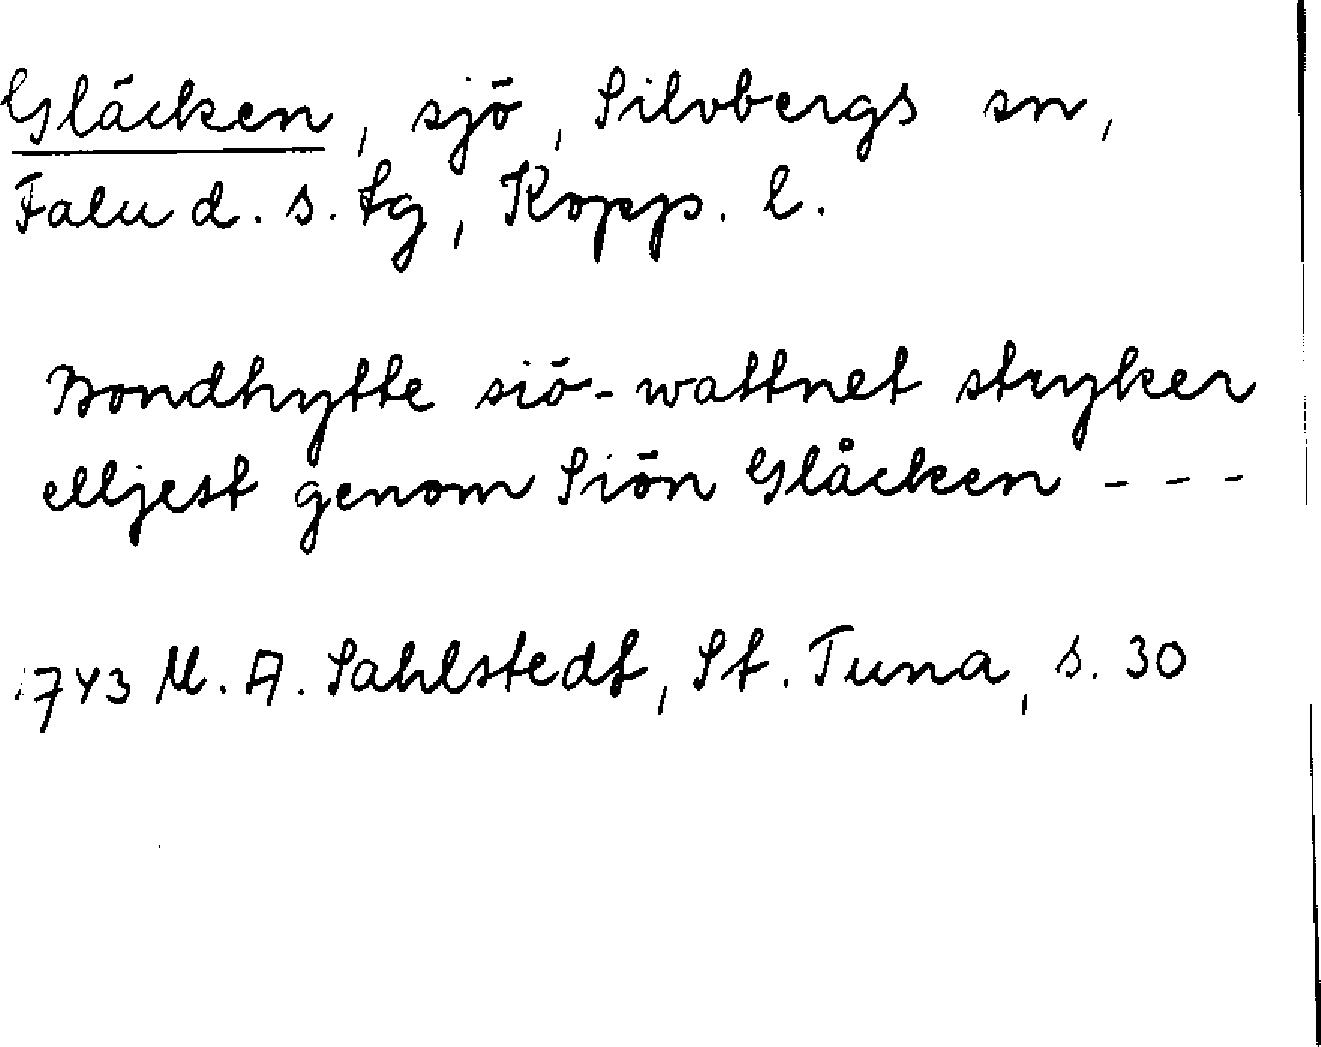 Gläcken, sjö, Silvbergs sn,
Falu d. s. tg, Kopp. l.
Bondhytte siö-wattnet stryker
elljest genom Siön Glåcken - - -
1743 M. A. Sahlstedt, St. Tuna, s. 30